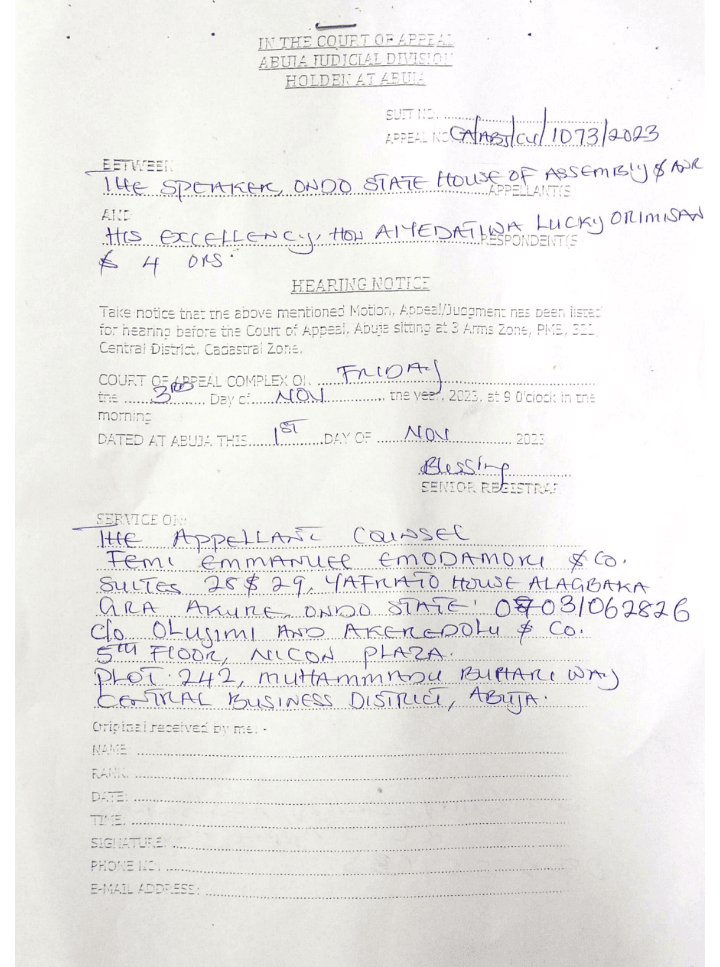 IN THE COURT OF APPEAL
ABUJA JUDICIAL DIVISION
HOLDEN AT ABUJA
SUIT NO: ........................
APPEAL NO CA/ABJ/CV/1073/2023
BETWEEN
THE SPEAKER, ONDO STATE HOUSE OF ASSEMBLY & ANR
APPELLANT/S
AND
HIS EXCELLENCY, HON AIYEDATIWA LUCKY ORIMISAN
RESPONDENT/S
& 4 ORS.
HEARING NOTICE
Take notice that the above mentioned Motion, Appeal/Judgment has been listed
for hearing before the Court of Appeal, Abuja sitting at 3 Arms Zone, PMB, 311
Central District, Cadastral Zone.
COURT OF APPEAL COMPLEX ON FRIDAY
the 3RD Day of NOV the year, 2023, at 9 O'clock in the
morning
DATED AT ABUJA THIS 1ST DAY OF NOV 2023
Blessing
SENIOR REGISTRAR
SERVICE ON:
THE APPELLANT COUNSEL
FEMI EMMANUEL EMODAMORI & CO.
SUITES 28 & 29, YAFRATO HOUSE ALAGBAKA
GRA AKURE, ONDO STATE. 07031062826
C/O OLUJIMI AND AKEREDOLU & CO.
5TH FLOOR, NICON PLAZA.
PLOT 242, MUHAMMADU BUHARI WAY
CENTRAL BUSINESS DISTRICT, ABUJA.
Original received by me: -
NAME
RANK:
DATE:
TIME:
SIGNATURE:
PHONE NO:
E-MAIL ADDRESS: